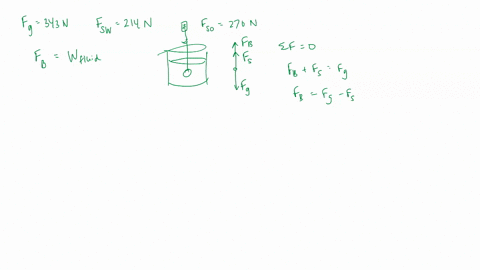 Fg = 343 N    Fsw = 214 N    Fso = 270 N
FB = Wfluid
FB
Fs
Fg
ΣF = 0
FB + Fs = Fg
FB = Fg - Fs